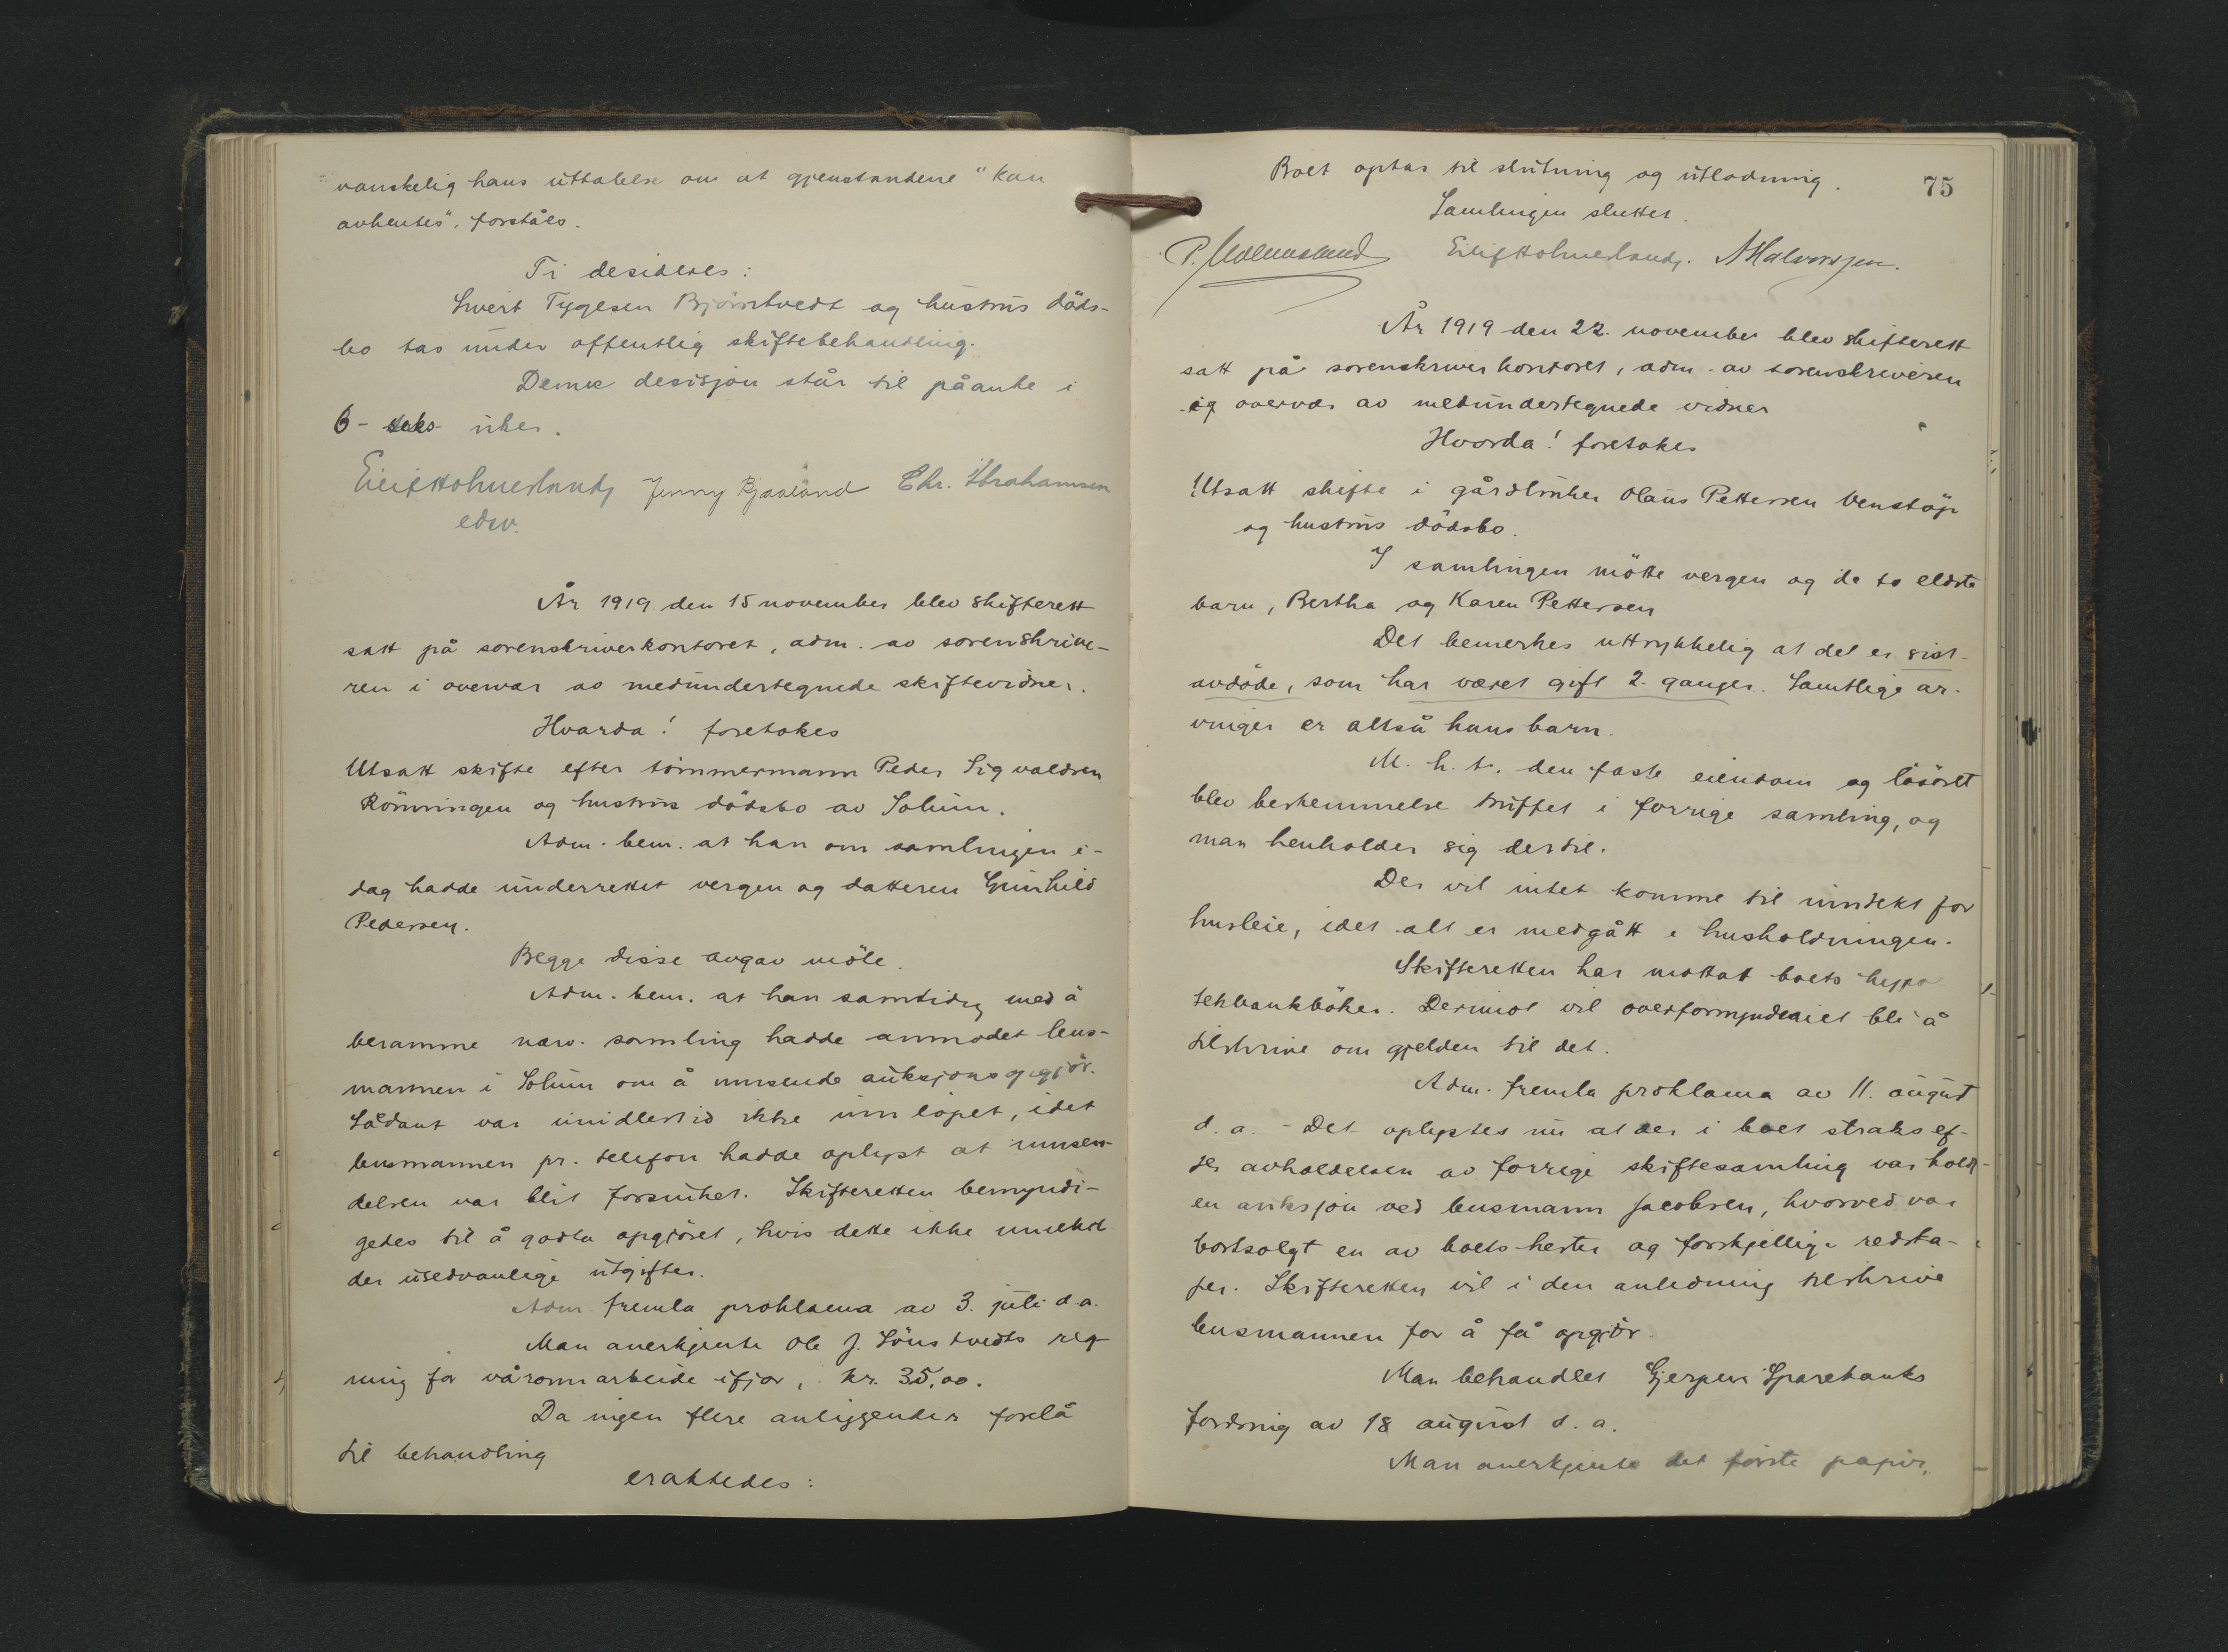 vanskelig hans uttalelse om at gjenstandene "kan
avhentes", forståes.
Ti desideres:
Sivert Tygesen Bjørntvedt og hustrus döds-
bo tas under offentlig skiftebehandling.
Denne desisjon står til påanke i
6 - seks - uker.
Eilif Holmesland, Jenny Bjaaland Chr. Abrahamsen
edsv.
År 1919 den 15 november blev skifterett
satt på sorenskriverkontoret, adm. av sorenskrive-
ren i overvær av medundertegnede skiftevidner.
Hvorda! foretokes
Utsatt skifte efter tömmermann Peder Sigvaldsen
Rönningen og hustrus dödsbo av Solum.
Adm. bem. at han om samlingen i-
dag hadde underrettet vergen og datteren Gunhild
Pedersen.
Begge disse avgav möte.
Adm. bem. at han samtidig med å
beramme nærv. samling hadde anmodet lens-
mannen i Solum om å innsende auksjonsopgjör.
Sådant var imidlertid ikke innlöpet, idet
lensmannen pr. telefon hadde oplyst at innsen-
delsen var blit forsinket. Skifteretten bemyndi-
gedes til å godta opgjöret, hvis dette ikke innehol-
der usedvanlige utgifter.
Adm. fremla proklama av 3. juli d.a.
Man anerkjente Ole J. Lönstvedts reg-
ning for våronnarbeide ifjor, kr. 35,00.
Da ingen flere anliggender forelå
til behandling
eraktedes:
75
Boet optas til slutning og utlodning.
Samlingen sluttet.
P. Eilif Holmesland. A Halvorsen.
År 1919 den 22. november blev skifterett
satt på sorenskriverkontoret, adm. av sorenskriveren
og overvær av medundertegnede vidner
Hvorda! foretokes
Utsatt skifte i gårdbruker Olaus Pettersen Venstöp
og hustrus dödsbo.
I samlingen mötte vergen og de to eldste
barn, Bertha og Karen Pettersen
Det bemerkes uttrykkelig at det er sist-
avdöde, som har været gift 2 ganger. Samtlige ar-
vinger er altså hans barn.
M. h. t. den faste eiendom og lösöret
blev bestemmelse truffet i forrige samling, og
man henholder sig dertil.
Der vil intet komme til inntekt for
husleie, idet alt er medgått i husholdningen.
Skifteretten har mottat boets hypo
tekbankböker. Derimot vil overformynderiet bli å
tilskrive om gjelden til det.
Adm. fremla proklama av 11. august
d. a. - Det oplystes nu at der i boet straks ef-
ter avholdelsen av forrige skiftesamling var holdt
en auksjon ved lensmann Jacobsen, hvorved var
bortsolgt en av boets hester og forskjellige redska-
per. Skifteretten vil i den anledning tilskrive
lensmannen for å få opgjör.
Man behandlet Gjerpen Sparebanks
fordring av 18 august d. a.
Man anerkjente det förste papir,